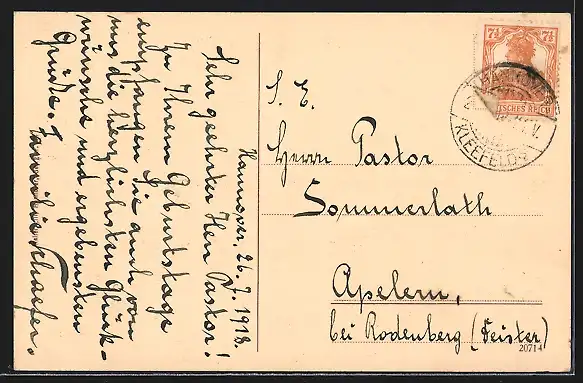 Hannover, 26.7.1918.
Sehr geehrter Herr Pastor!
Zu Ihrem Geburtstage
empfangen Sie auch von
uns die herzlichsten Glück-
wünsche und ergebensten
Grüße.
Familie Schaefer.
7½ 7½
HANNOVER
KLEEFELD
S. E.
Herrn Pastor
Sommerlath
Apelern,
bei Rodenberg (Deister)
20714